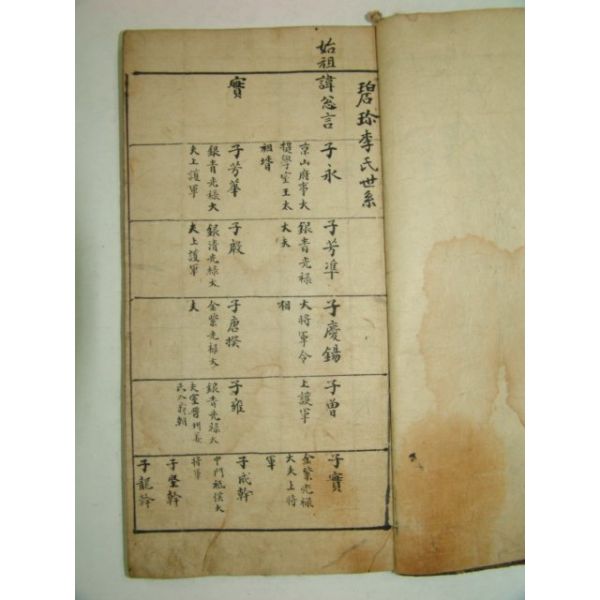 碧珍李氏世系
始祖諱忩言
子永
京山府事大
提學室王太
祖壻
子芳準
銀青光祿
大夫
子慶錫
大將軍令
相
子曽
上護軍
子實
金紫光祿
大夫上將
軍
實
子芳華
銀青光祿大
夫上護軍
子殷
銀清光祿大
夫上護軍
子唐揆
金紫光祿大
夫
子雍
銀青光祿大
子成幹
中門祗侯大
將軍
子堅幹
子龍幹